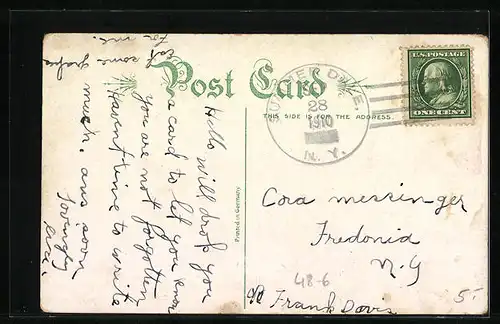 Post Card
THIS SIDE IS FOR THE ADDRESS.
28
1910
N. Y.
U.S. POSTAGE
ONE CENT
Hello will drop you
a card to let you know
you are not forgotten
Havent time to write
much. ans soon
Lovingly
Eat some grapes
for me.
Printed in Germany
Cora messinger
Fredonia
N.Y
c/o Frank Davis
48-6
5-